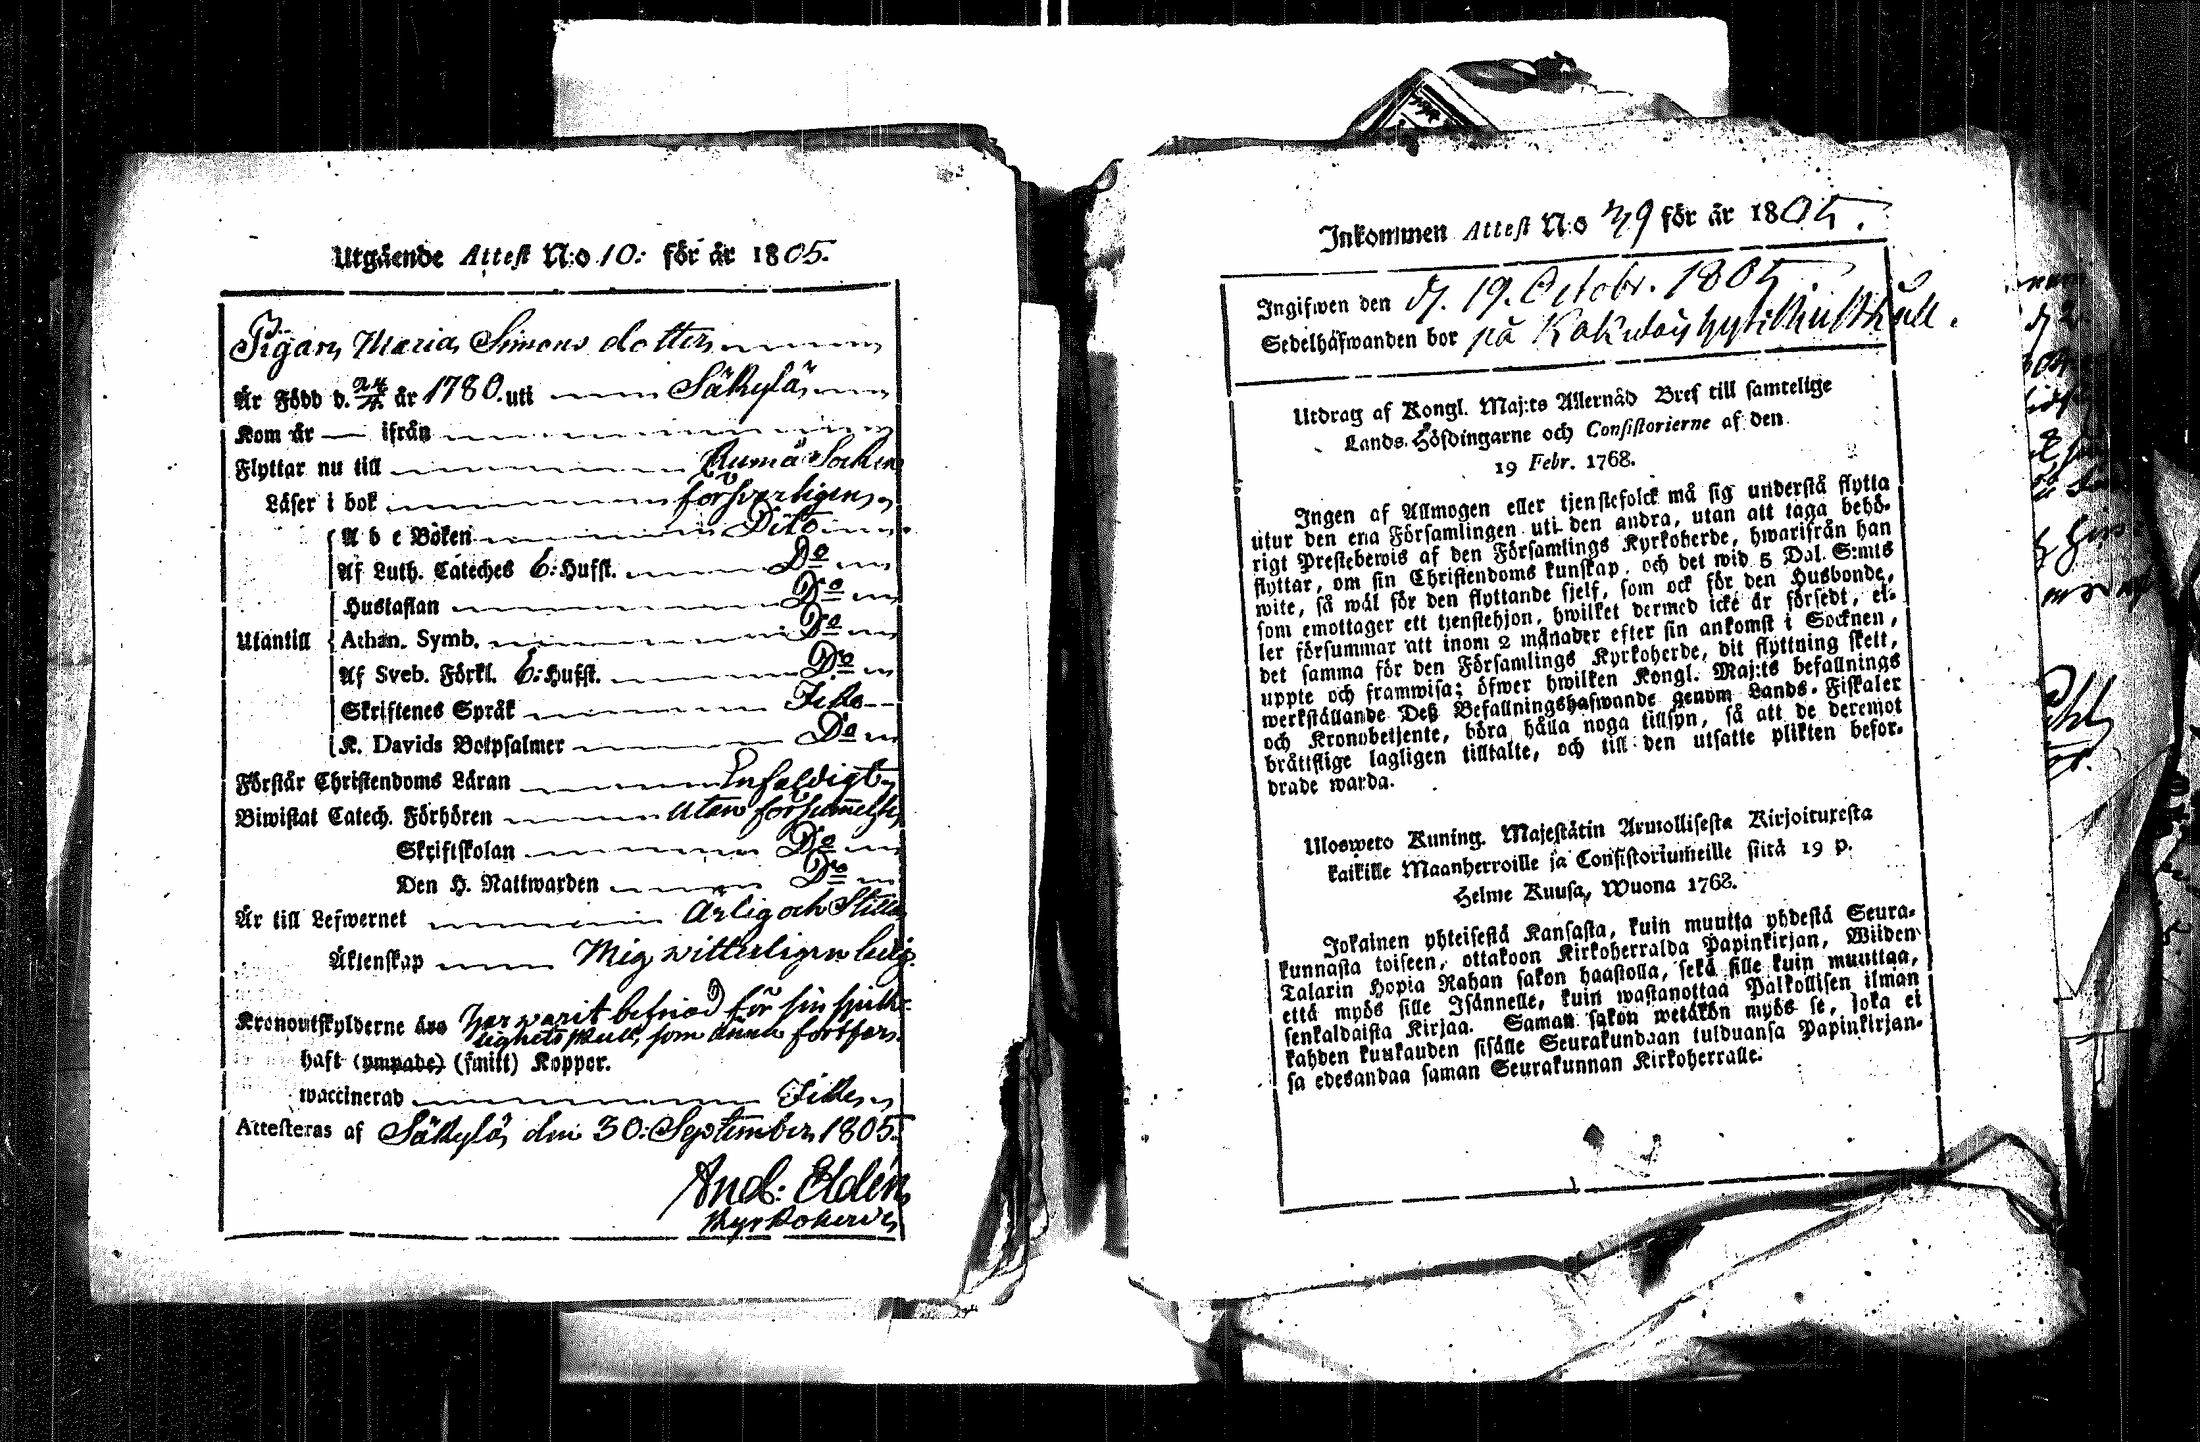 Utgående Attest N:o 10: för år 1805.
Pigan Maria Simons dotter
Är Född d. 24/ år 1780. uti Säkylä
Kom år — ifrån
Flyttar nu till Kumå Sochn
Läser i bok försvarligen
A b c Boken Dito
Af Luth. Cateches 6: Hufst. Do
Hustaflan Do
Utantill Athan. Symb. Do
Af Sveb. Förkl. 6: Hufst. Do
Skriftenes Språk Icke
K. Davids Botpsalmer Do
Förstår Christendoms Läran Enfaldigt
Biwistat Catech. Förhören utan försummelse
Skriftskolan Do
Den H. Nattwarden Do
Är till Lefwernet Ärlig och Stilla
Äktenskap Mig witterligen ledig
Kronoutskylderne äro har warit befriad för sin
skull, som ännu fortfar.
haft (ympade) (smitt) Koppor.
waccinerad Icke
Attesteras af Säkylä den 30: September 1805.
And: Eldén
Kyrkoherde
Inkommen Attest N:o 49 för år 1805.
Ingifwen den d. 19. Octobr. 1805
Sedelhäfwanden bor på
Utdrag af Kongl. Maj:ts Allernåd Bref till samtelige
Lands-Höfdingarne och Consistorierne af den
19 Febr. 1768.
Ingen af Allmogen eller tjenstefolck må sig understå flytta
utur den ena Församlingen uti den andra, utan att taga behö-
rigt Prestebewis af den Församlings Kyrkoherde, hwarifrån han
flyttar, om sin Christendoms kunskap, och det wid 5 Dal. S:mts
wite, så wäl för den flyttande sjelf, som ock för den Husbonde,
som emottager ett tjenstehjon, hwilket dermed icke är försedt, el-
ler försummar att inom 2 månader efter sin ankomst i Socknen,
det samma för den Församlings Kyrkoherde, dit flyttning skett,
uppte och framwisa; öfwer hwilken Kongl. Maj:ts befallnings
werkställande Deß Befallningshafwande genom Lands-Fiskaler
och Kronobetjente, böra hålla noga tillsyn, så att de deremot
bråttslige lagligen tilltalte, och till den utsatte plikten befor-
drade warda.
Ulosweto Kuning. Majestätin Armollisesta Kirjoituxesta
kaikille Maanherroille ja Consistoriumeille siitä 19 p.
Helme Kuusa, Wuona 1768.
Jokainen yhteisestä Kansasta, kuin muutta yhdestä Seura-
kunnasta toiseen, ottakoon Kirkoherralda Papinkirjan, Wiiden
Talarin Hopia Rahan sakon haastolla, sekä sille kuin muuttaa,
että myös sille Isännelle, kuin wastanottaa Palkollisen ilman
senkaldaista Kirjaa. Saman sakon wetäkön myös se, joka ei
kahden kuukauden sisälle Seurakundaan tulduansa Papinkirjan-
sa edesandaa saman Seurakunnan Kirkoherralle.